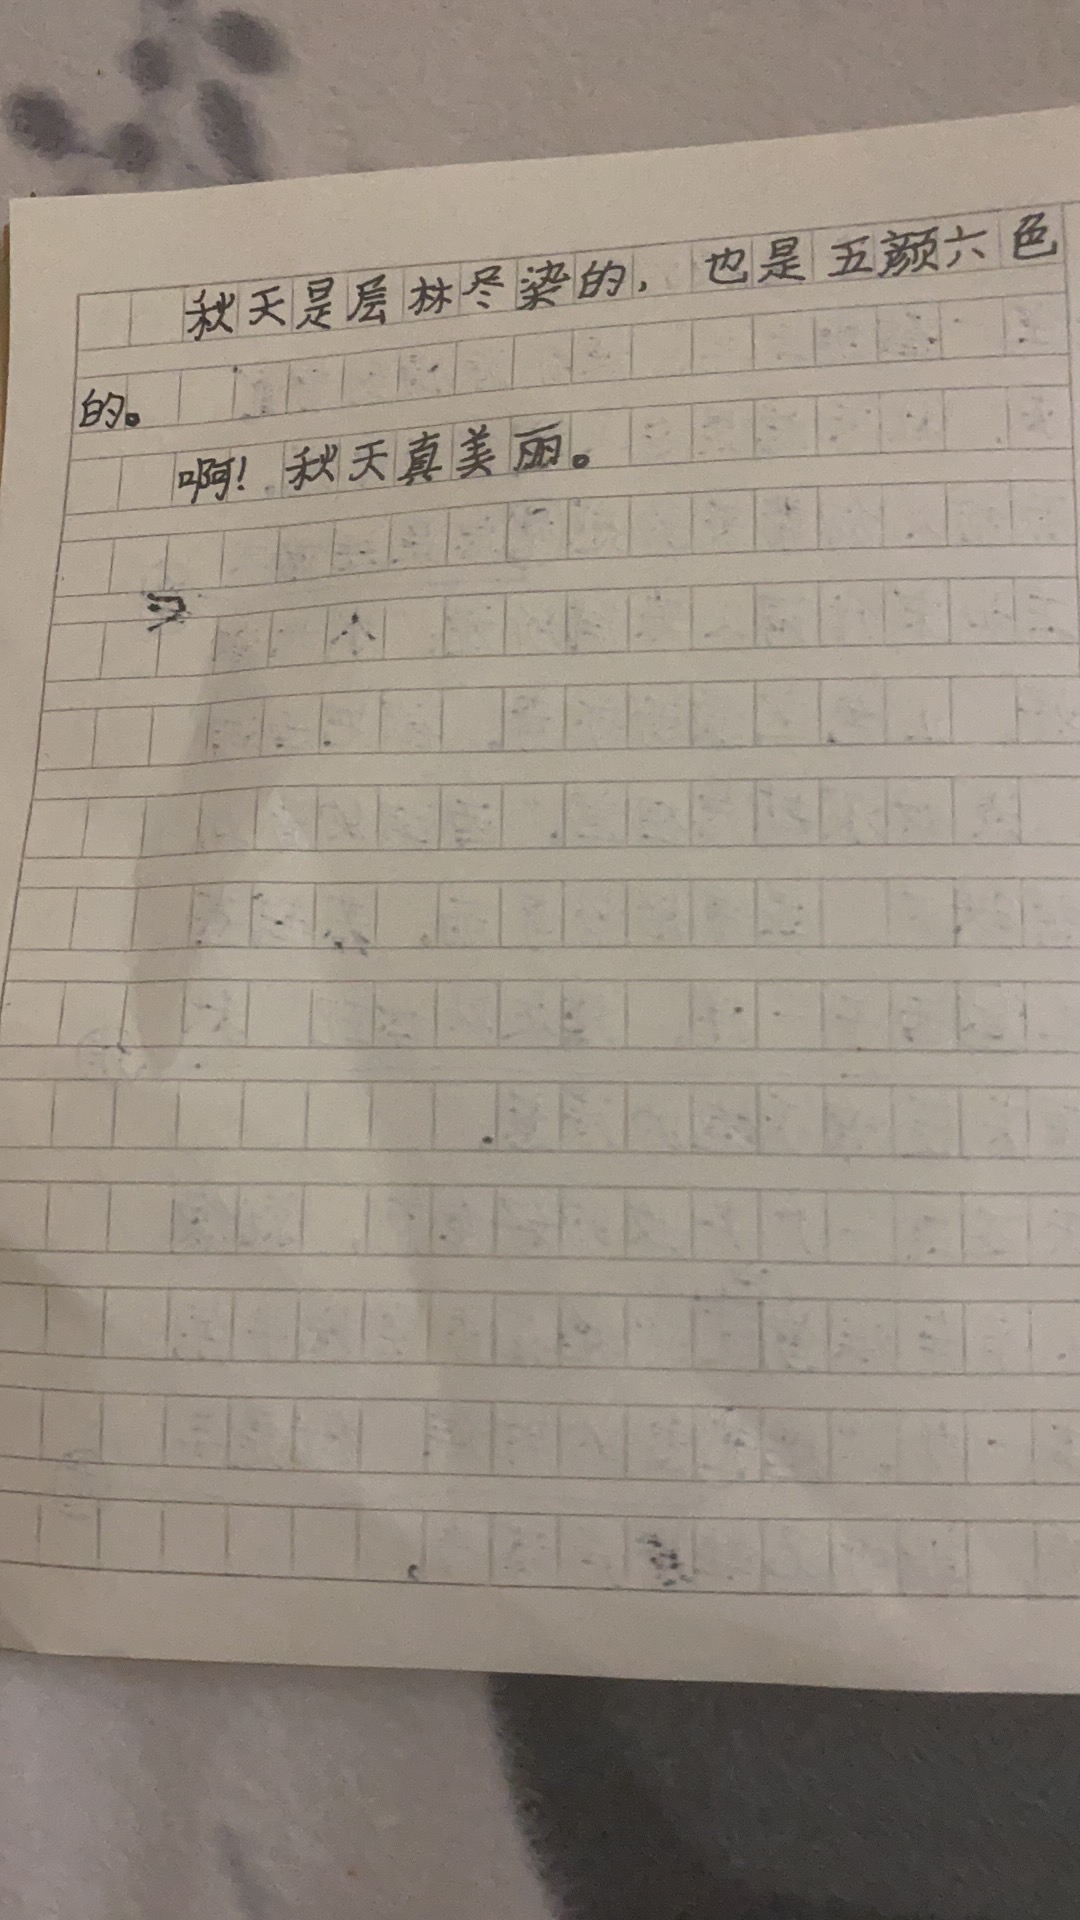 秋天是层林尽染的，也是五颜六色
的。
啊！秋天真美丽。